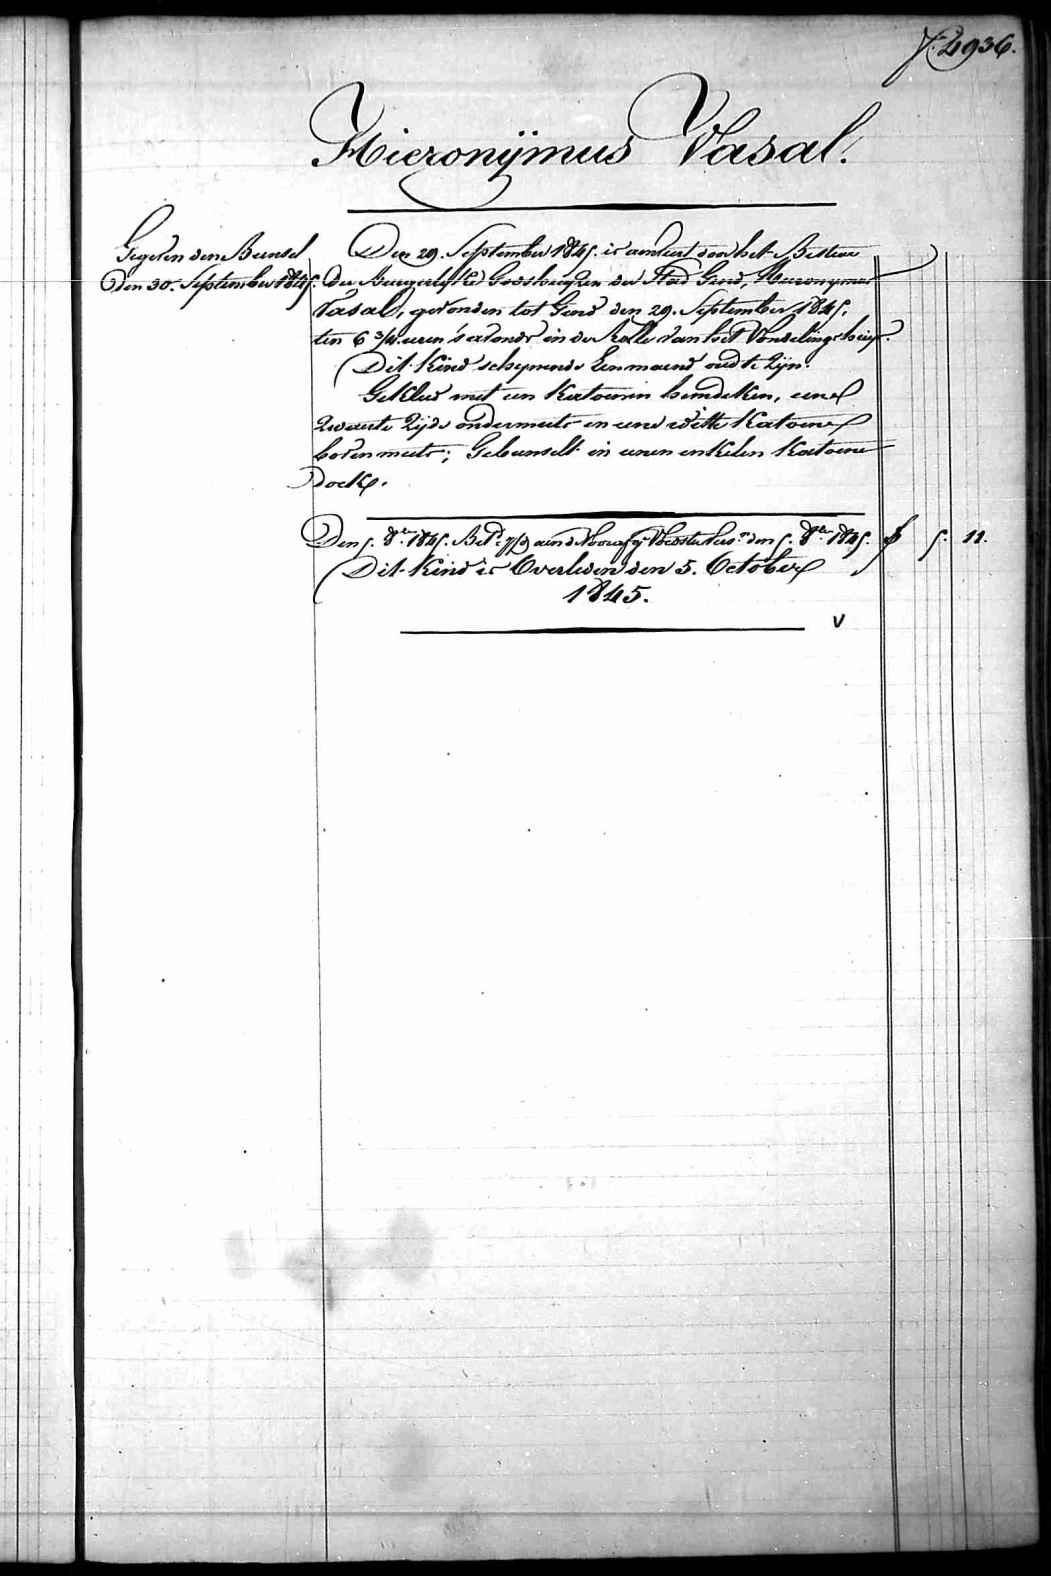 f. 2936.
Hieronÿmus Vasal.
Gegeven den Bunsel
Den 30. September 1845.
Den 29. September 1845. is aenveert door het Bestier
der Burgerlyke Godshuyzen der Stad Gend, Hieronymus
Vasal, gevonden tot Gend den 29. September 1845.
ten 6 3/4 uren s'avonds in de Rolle van het Vondelingshuys.
Dit Kind schynende Een maend oud te Zyn.
Gekleed met een Katoenen hemdeken, eene
Zwarte Zyde ondermuts en eene witte Katoene
bovenmuts; Gebunselt in eenen enkelen Katoene
doek.
Den 5. 8er. 1845. Bet. aen den 5. 8er. 1845. 5. 11.
Dit Kind is Overleden den 5. October
1845.
v